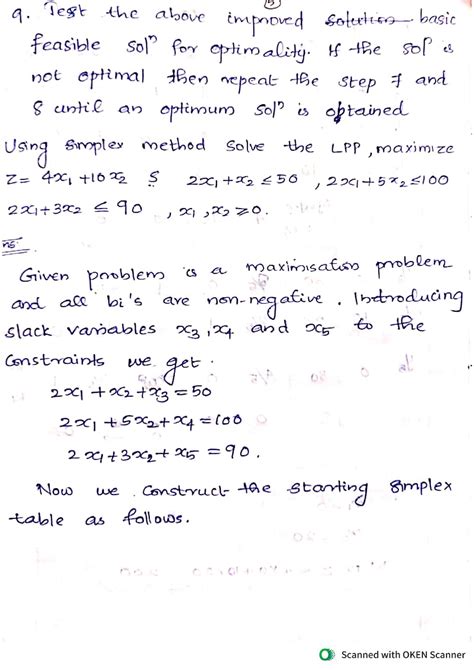 9. Test the above improved solution basic
feasible solⁿ for optimality. If the solⁿ is
not optimal then repeat the step 7 and
8 until an optimum solⁿ is obtained
Using simplex method solve the LPP, maximize
Z = 4x₁ +10x₂ S 2x₁+x₂ ≤ 50 , 2x₁+5x₂≤100
2x₁+3x₂ ≤ 90 , x₁ , x₂ ≥ 0.
ns:
Given problem is a maximisation problem
and all bi's are non-negative. Introducing
slack variables x₃, x₄ and x₅ to the
constraints we get.
2x₁ + x₂ + x₃ = 50
2x₁ + 5x₂ + x₄ = 100
2x₁+3x₂+ x₅ = 90.
Now we construct the starting simplex
table as follows.
Scanned with OKEN Scanner